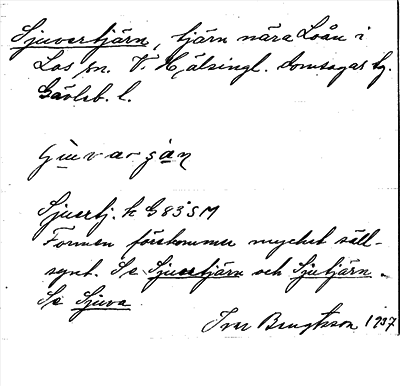 Sjuvertjärn, tjärn nära Loån i
Los sn. V. Hälsingl. domsagas tg.
Gävleb. l.
Sjuertj. k G83SM
Formen förekommer mycket säll-
synt. Se Sjuertjärn och Sjutjärn.
Se Sjuva
Ivar Bengtsson 1937